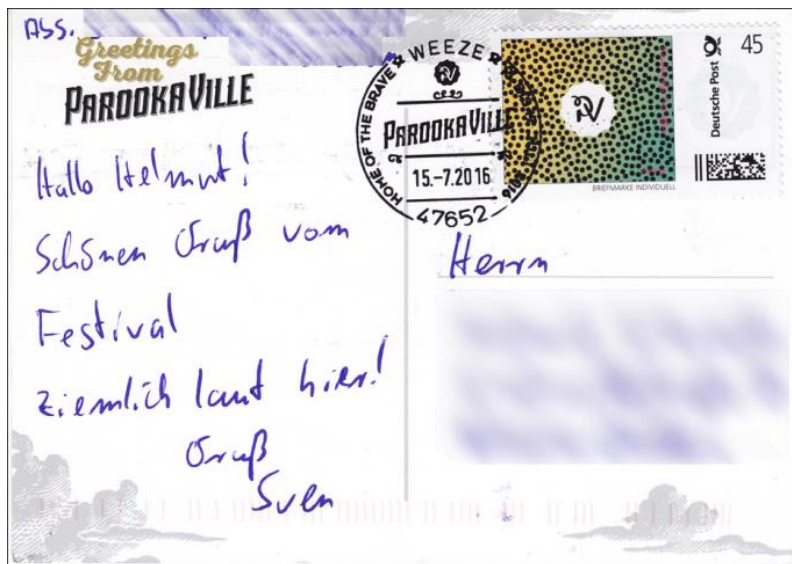 Abs.
Greetings
From
PAROOKAVILLE
Hallo Helmut!
Schönen Gruß vom
Festival
Ziemlich laut hier!
Gruß
Sven
HOME OF THE BRAVE
WEEZE
PAROOKAVILLE
15.-7.2016
47652
Deutsche Post
45
BRIEFMARKE INDIVIDUELL
Herrn